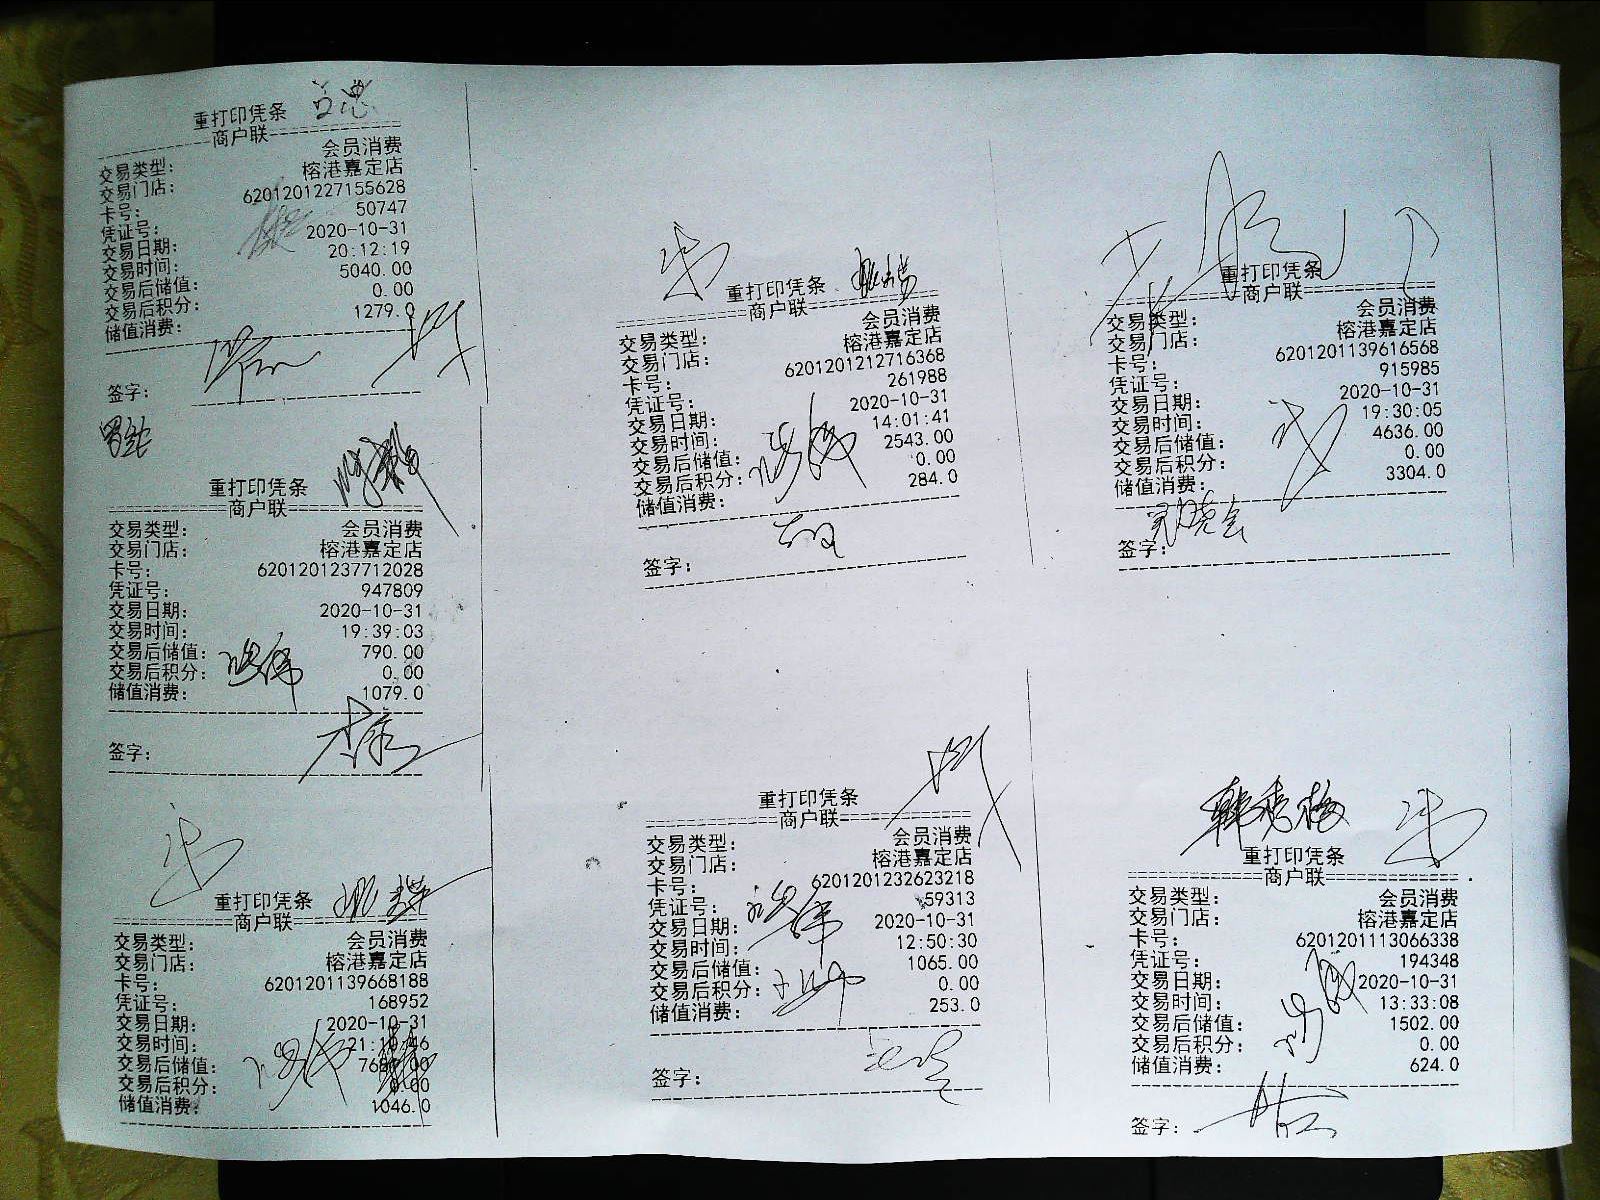 重打印凭条
商户联
交易类型: 会员消费
交易门店: 榕港嘉定店
卡号: 6201201227155628
凭证号: 50747
交易日期: 2020-10-31
交易时间: 20:12:19
交易后储值: 5040.00
交易后积分: 0.00
储值消费: 1279.0
签字:
重打印凭条
商户联
交易类型: 会员消费
交易门店: 榕港嘉定店
卡号: 6201201237712028
凭证号: 947809
交易日期: 2020-10-31
交易时间: 19:39:03
交易后储值: 790.00
交易后积分: 0.00
储值消费: 1079.0
签字:
重打印凭条
商户联
交易类型: 会员消费
交易门店: 榕港嘉定店
卡号: 6201201139668188
凭证号: 168952
交易日期: 2020-10-31
交易时间:
交易后储值:
交易后积分: 0.00
储值消费: 1046.0
重打印凭条
商户联
交易类型: 会员消费
交易门店: 榕港嘉定店
卡号: 6201201212716368
凭证号: 261988
交易日期: 2020-10-31
交易时间: 14:01:41
交易后储值: 2543.00
交易后积分: 0.00
储值消费: 284.0
签字:
重打印凭条
商户联
交易类型: 会员消费
交易门店: 榕港嘉定店
卡号: 6201201232623218
凭证号: 59313
交易日期: 2020-10-31
交易时间: 12:50:30
交易后储值: 1065.00
交易后积分: 0.00
储值消费: 253.0
签字:
重打印凭条
商户联
交易类型: 会员消费
交易门店: 榕港嘉定店
卡号: 6201201139616568
凭证号: 915985
交易日期: 2020-10-31
交易时间: 19:30:05
交易后储值: 4636.00
交易后积分: 0.00
储值消费: 3304.0
签字:
韩秀梅
重打印凭条
商户联
交易类型: 会员消费
交易门店: 榕港嘉定店
卡号: 6201201113066338
凭证号: 194348
交易日期: 2020-10-31
交易时间: 13:33:08
交易后储值: 1502.00
交易后积分: 0.00
储值消费: 624.0
签字: